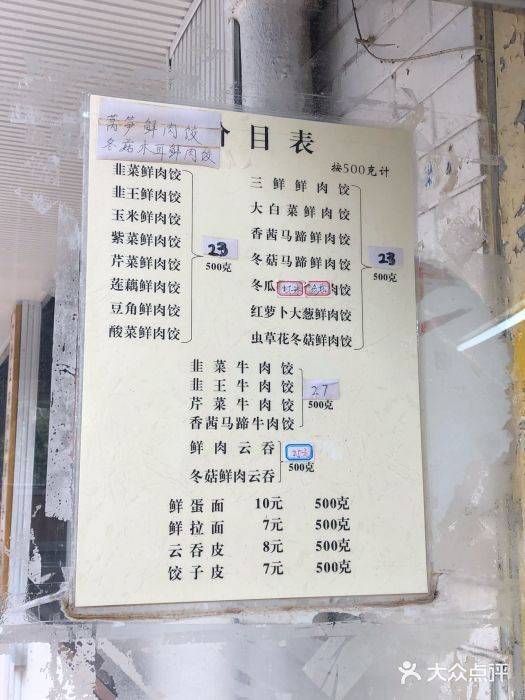 莴笋鲜肉饺
冬菇木耳鲜肉饺
价目表
按500克计
韭菜鲜肉饺
韭王鲜肉饺
玉米鲜肉饺
紫菜鲜肉饺
芹菜鲜肉饺
莲藕鲜肉饺
豆角鲜肉饺
酸菜鲜肉饺
23
500克
三鲜鲜肉饺
大白菜鲜肉饺
香茜马蹄鲜肉饺
冬菇马蹄鲜肉饺
冬瓜 肉饺
红萝卜大葱鲜肉饺
虫草花冬菇鲜肉饺
23
500克
韭菜牛肉饺
韭王牛肉饺
芹菜牛肉饺
香茜马蹄牛肉饺
27
500克
鲜肉云吞
冬菇鲜肉云吞
25元
500克
鲜蛋面 10元 500克
鲜拉面 7元 500克
云吞皮 8元 500克
饺子皮 7元 500克
大众点评